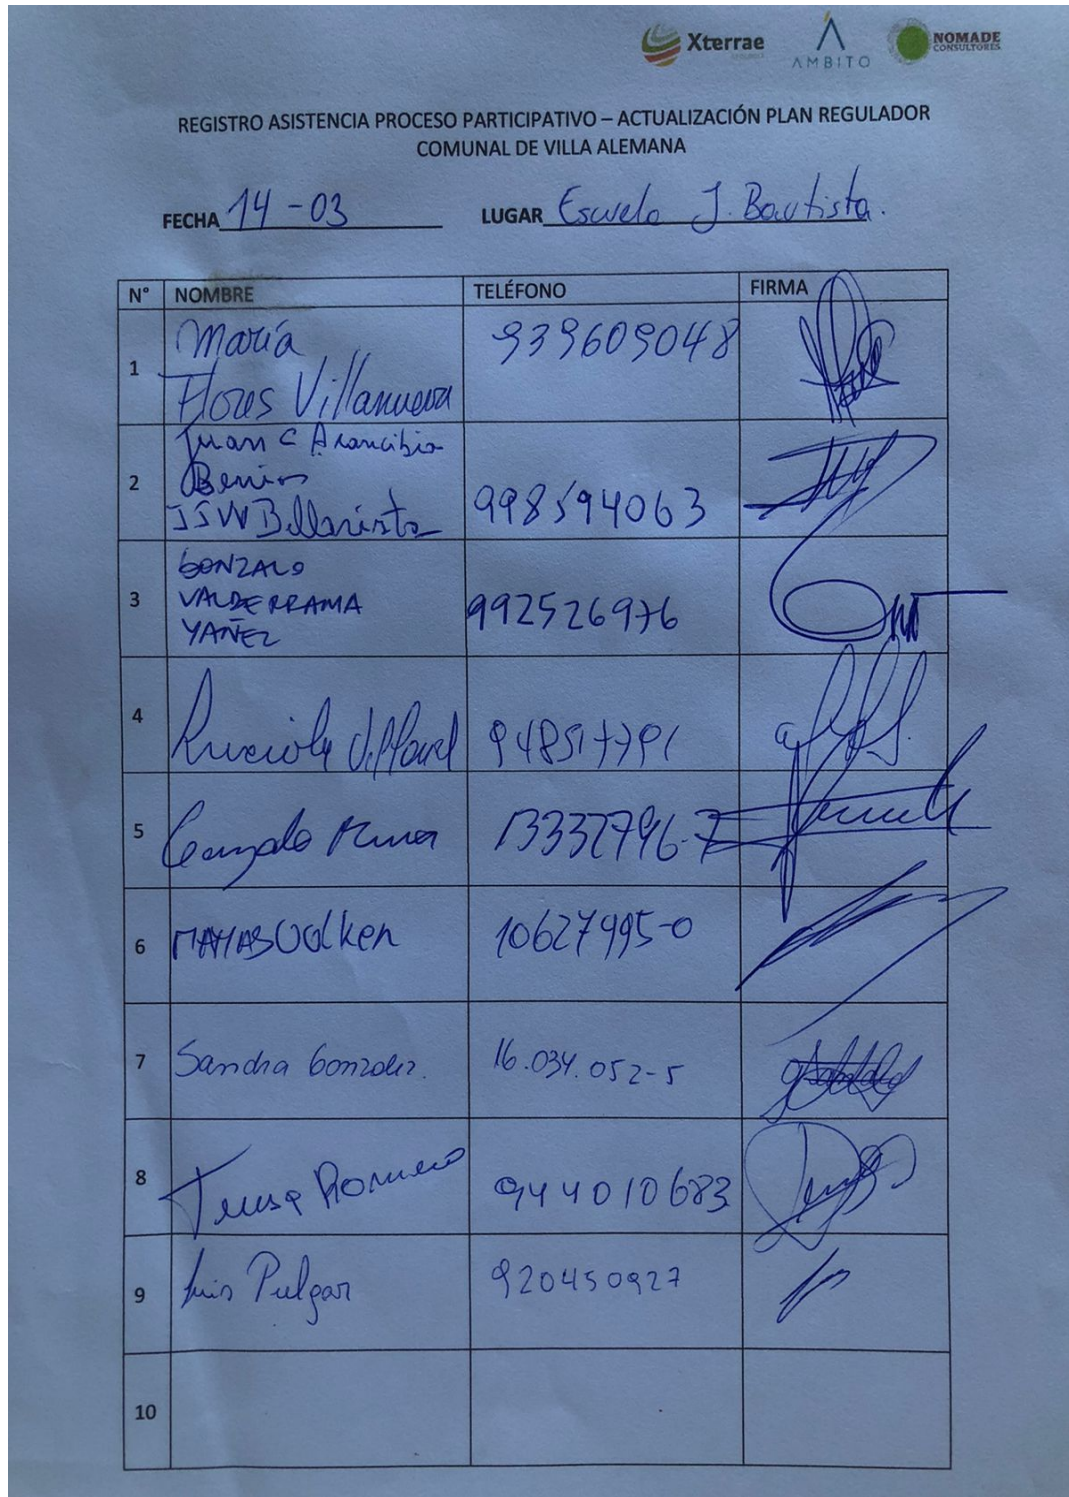 Xterrae
AMBITO
NOMADE
CONSULTORES
REGISTRO ASISTENCIA PROCESO PARTICIPATIVO – ACTUALIZACIÓN PLAN REGULADOR
COMUNAL DE VILLA ALEMANA
FECHA 14-03 LUGAR Escuela J. Bautista.
N° NOMBRE TELÉFONO FIRMA
1 María 939609048
Flores Villanueva
2 Juan C Arancibia
Berrios
JJVV Bellavista 998594063
3 GONZALO
VALDERRAMA 992526976
YAÑEZ
4 948517791
5 Gonzalo 13332796-7
6 MATIAS Valken 10627995-0
7 Sandra Gonzalez. 16.034.052-5
8 Teresa Romero 944010683
9 Luis Pulgar 920450927
10